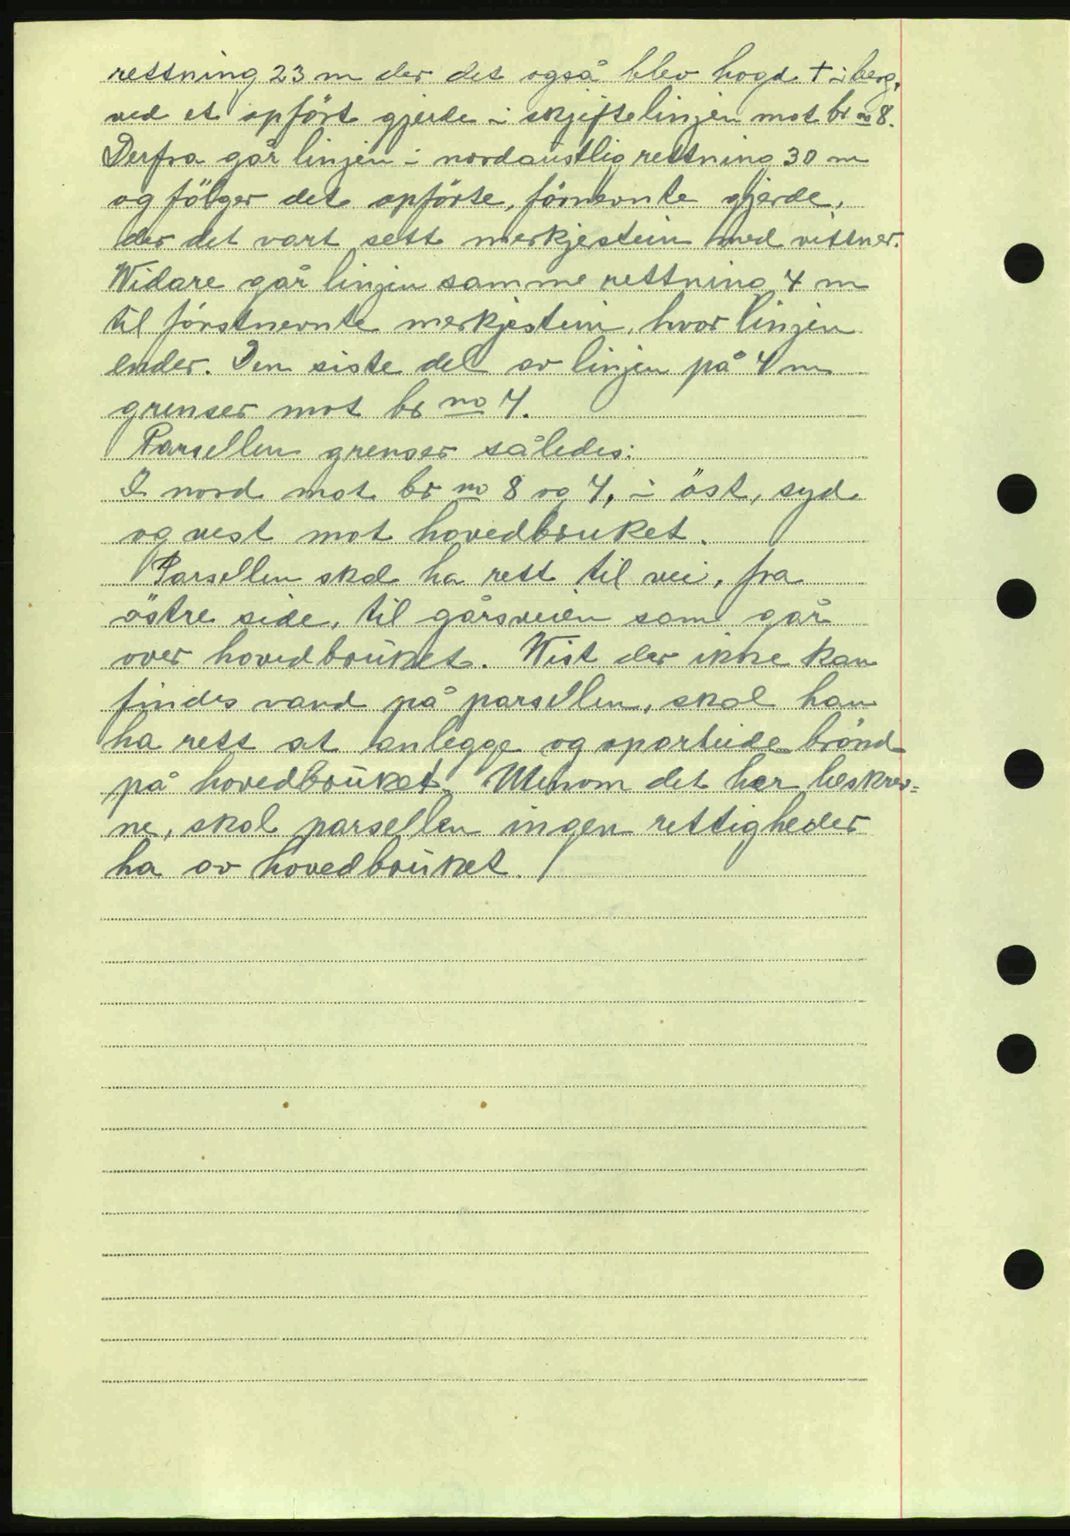 rettning 23 m der det også blev hogd + i berg,
ved et opført gjerde i skjiftelinjen mot br no 8.
Derfra går linjen i nordaustlig rettning 30 m
og fölger det opförte, förnevnte gjerde,
der det vart sett merkjestein med vittner.
Widare går linjen samme rettning 4 m
til förstnevnte merkjestein, hvor linjen
ender. Den siste del av linjen på 4 m
grenser mot br no 4.
Parsellen grenser således:
I nord mot br no 8 og 4, i öst, syd
og vest mot hovedbruket.
Parsellen skal ha rett til vei, fra
östre side, til gårsveien som går
over hovedbruket. Vist der ikke kan
findes vand på parsellen, skal han
ha rett at anlegge og oparbeide brönd
på hovedbruket. Utenom det her beskrev=
ne, skal parsellen ingen rettigheder
ha av hovedbruket. /